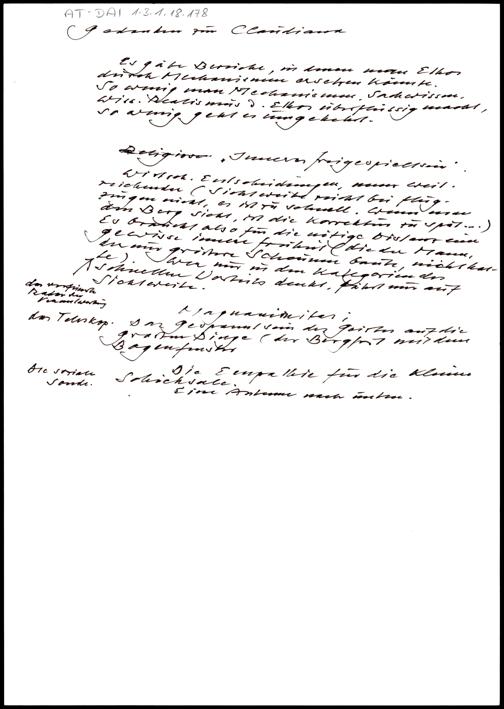 AT-DAI 1.3.1.18.178
Gedanken zur Claudiana
Es gäbe Bereiche, in denen man Ethos
durch Mechanismen ersetzen könnte.
So wenig man Mechanismen, Sachwissen,
wiss. Realismus d. Ethos überflüssig macht,
so wenig geht es umgekehrt.
Religiöse „Inneres freigespieltsein".
Wirtsch. Entscheidungen, immer weit-
reichender (Sichtweite reicht bei Flug-
zeugen nicht, es ist zu schnell. Wenn man
den Berg sieht, ist die Korrektur zu spät...)
Es braucht also für die nötige Distanz eine
gewisse innere Freiheit (die der Mann,
der nur größere Scheunen baute, nicht hat-
te). Wer nur in den Kategorien des
schnellen Vorteils denkt, fährt nur auf
Sichtweite.
das
Radar der
das Teleskop.
Magnanimitas;
Das Gespanntsein des Geistes auf die
großen Dinge (der Bergfrit mit dem
Bogenfenster
Die soziale
Sonde.
Die Empathie für die kleinen
Schicksale.
Eine Antenne nach unten.